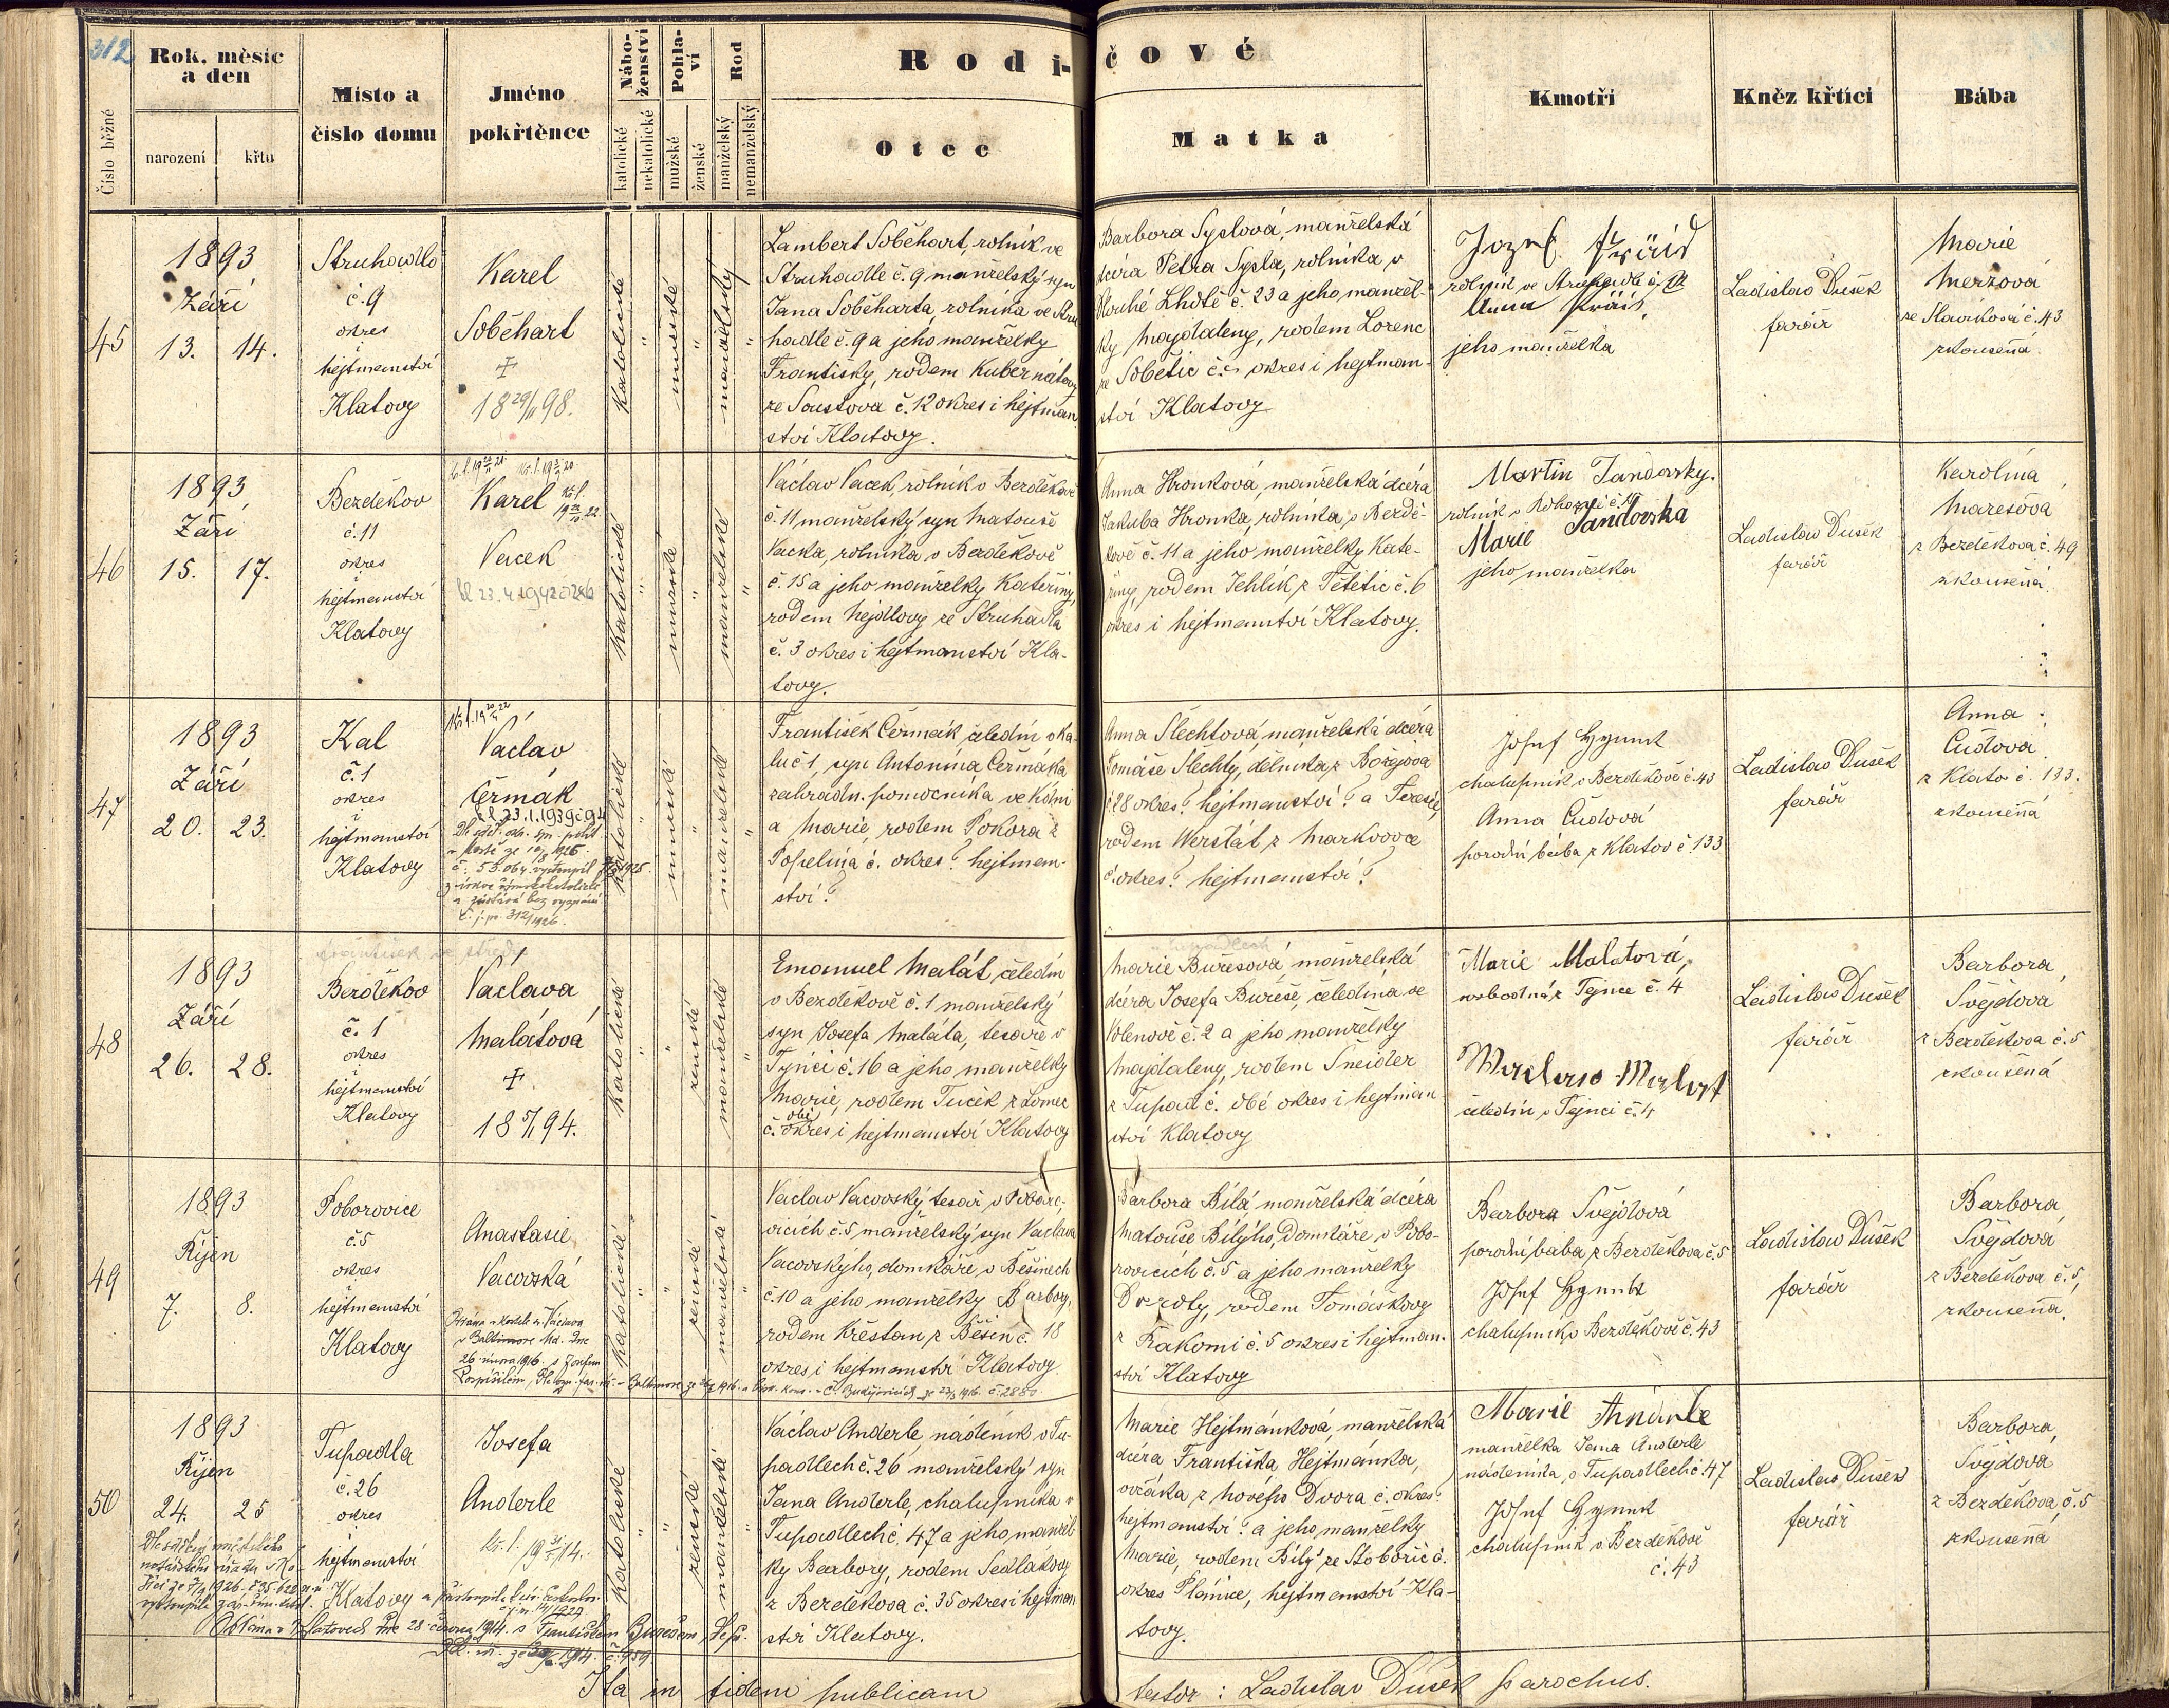 312
Rok, měsíc
a den
Místo a
číslo domu
Jméno
pokřtěnce
Nábo-
ženství
Pohla-
ví
Rod
Rodi-
čové
Kmotři
Kněz křtící
Bába
Číslo běžné
narození
křtu
katolické
nekatolické
mužské
ženské
manželský
nemanželský
Otec
Matka
45
1893
Září
13. 14.
Struhadlo
č. 9
okres
i
hejtmanství
Klatovy
Karel
Soběhart
+
18 29/11 98.
katolické
"
mužské
"
manželský
"
Lambert Soběhart, rolník ve
Struhadle č. 9 manželský syn
Jana Soběharta, rolníka ve Stru
hadle č. 9 a jeho manželky
Františky, rodem Kubernátovy
ze Soustova č. 12 okres i hejtman
ství Klatovy.
Barbora Syslová, manželská
dcéra Petra Sysla, rolníka v
Dlouhé Lhotě č. 23 a jeho manžel-
ky Majdaleny, rodem Lorenc
ze Sobětic č. okres i hejtman-
ství Klatovy
Jozef
rolník ve Struhadle č.
Anna
jeho manželka
Ladislav Dušek
farář
Marie
Merzová
ze Slavíkovic č. 43
zkoušená.
46
1893
Září
15. 17.
Bezděkov
č. 11
okres
i
hejtmanství
Klatovy
Karel
Vacek
katolické
"
mužské
"
manželské
"
Václav Vacek, rolník v Bezděkově
č. 11 manželský syn Matouše
Vacka, rolníka v Bezděkově
č. 15 a jeho manželky Kateřiny,
rodem Hejdlovy ze Struhadla
č. 3 okres i hejtmanství Kla-
tovy.
Anna Hronková, manželská dcéra
Jakuba Hronka, rolníka, v Bezdě-
kově č. 11 a jeho manželky Kate-
řiny, rodem Jehlík z Tětětic č. 6
okres i hejtmanství Klatovy.
Martin Jandovsky.
rolník v
Marie Jandovska
jeho manželka
Ladislav Dušek
farář
Karolína
Marešová
z Bezděkova č. 49
zkoušená.
47
1893
Září
20. 23.
Kal
č. 1
okres
i
hejtmanství
Klatovy
Václav
Čermák
23.1.1939
z církve římskokatolické
a zůstává bez vyznání
č. j. p. 312/1926.
katolické
"
mužské
"
manželské
"
František Čermák čeledín v Ka-
lu č 1, syn Antonína Čermáka
zahradn. pomocníka ve Kdíni
a Marie, rodem Pokora z
Popelína č. okres? hejtman-
ství?
Anna Šlechtová, manželská dcéra
Tomáše Šlechty, dělníka, z Božejova
č 28 okres? hejtmanství? a Terezie,
rodem Werstát z Markvovce
č. okres? hejtmanství?
Josef Hynek
chalupník v Bezděkově č. 43
Anna Čudová
porodní bába z Klatov č 133
Ladislav Dušek
farář
Anna
Čudová
z Klatov č. 133.
zkoušená
48
1893
Září
26. 28.
Bezděkov
č. 1
okres
i
hejtmanství
Klatovy
Václava
Malátová
+
18 5/1 94.
katolické
"
"
ženské
manželské
"
Emanuel Malát, čeledín
v Bezděkově č. 1 manželský
syn Josefa Maláta, tesaře v
Týnci č. 16 a jeho manželky
Marie, rodem Tuček z Lomec
obé
č. okres i hejtmanství Klatovy
Marie Burešová, manželská
dcéra Josefa Bureše, čeledína ve
Volenově č. 2 a jeho manželky
Majdaleny, rodem Šneider
z Tupad č. obé okres i hejtman
ství Klatovy
Marie Malatová,
svobodná z Tejnce č. 4
Malat
čeledín v Tejnci č. 4
Ladislav Dušek
farář
Barbora
Švejdová
z Bezděkova č. 5
zkoušená
49
1893
Říjen
7. 8.
Poborovice
č. 5
okres
i
hejtmanství
Klatovy
Anastasie
Vacovská
v kostele sv. Václava
v Baltimore Md. dne
26. února 1916. s Josefem
Pospíšilem
katolické
"
"
ženské
manželské
"
Václav Vacovský, tesař v Poboro-
vicích č. 5 manželský syn Václava
Vacovskýho, domkáře v Běšinech
č. 10 a jeho manželky Barbory,
rodem Křesťan z Běšin č. 18
okres i hejtmanství Klatovy.
Barbora Bílá, manželská dcéra
Matouše Bílýho, domkáře v Pobo-
rovicích č. 5 a jeho manželky
Doroty, rodem Tomáškovy
z Rakomi č. 5 okres i hejtman-
ství Klatovy
Barbora Švejdová
porodní bába z Bezděkova č. 5
Josef Hynek
chalupník v Bezděkově č. 43
Ladislav Dušek
farář
Barbora
Švejdová
z Bezděkova č. 5,
zkoušená.
50
1893
Říjen
24. 25
Tupadla
č. 26
okres
i
hejtmanství
Klatovy
Josefa
Anderle
katolické
"
"
ženské
manželské
"
Václav Anderle, nádeník v Tu-
padlech č. 26 manželský syn
Jana Anderle, chalupníka v
Tupadlech č. 47 a jeho manžel-
ky Barbory, rodem Sedlákovy
z Bezděkova č. 35 okres i hejtman
ství Klatovy.
Marie Hejtmánková, manželská
dcéra Františka Hejtmánka,
ovčáka z Nového Dvora č. okres?
hejtmanství? a jeho manželky
Marie, rodem Bílý ze Stobořic č.
okres Plánice, hejtmanství Kla-
tovy.
Marie Anderle
manželka Jana Anderle
nádeníka, v Tupadlech č. 47
Josef Hynek
chalupník v Bezděkově
č. 43
Ladislav Dušek
farář
Barbora
Švejdová
z Bezděkova, č. 5
zkoušená
v Klatovech dne 28. června 1914. s Františkem Burešem
Ita in fidem publicam
testor: Ladislav Dušek parochus.